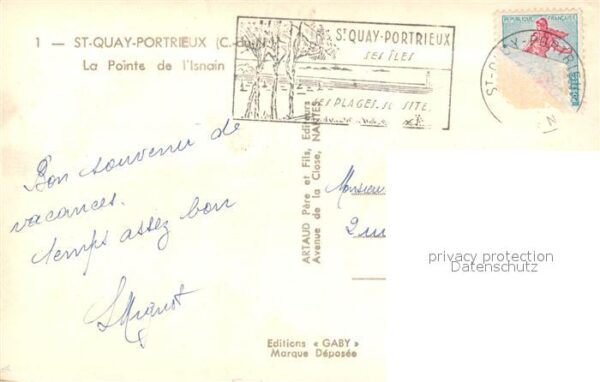 1 — ST-QUAY-PORTRIEUX (C.-du-N.)
La Pointe de l'Isnain
St QUAY-PORTRIEUX
SES ÎLES
SES PLAGES. SON SITE.
REPUBLIQUE FRANÇAISE
ST-QUAY-PORTRIEUX
Bon souvenir de
vacances.
temps assez bon
L Mignot
ARTAUD Père et Fils, Editeurs
Avenue de la Close, NANTES
Monsieur
privacy protection
Datenschutz
Editions « GABY »
Marque Déposée